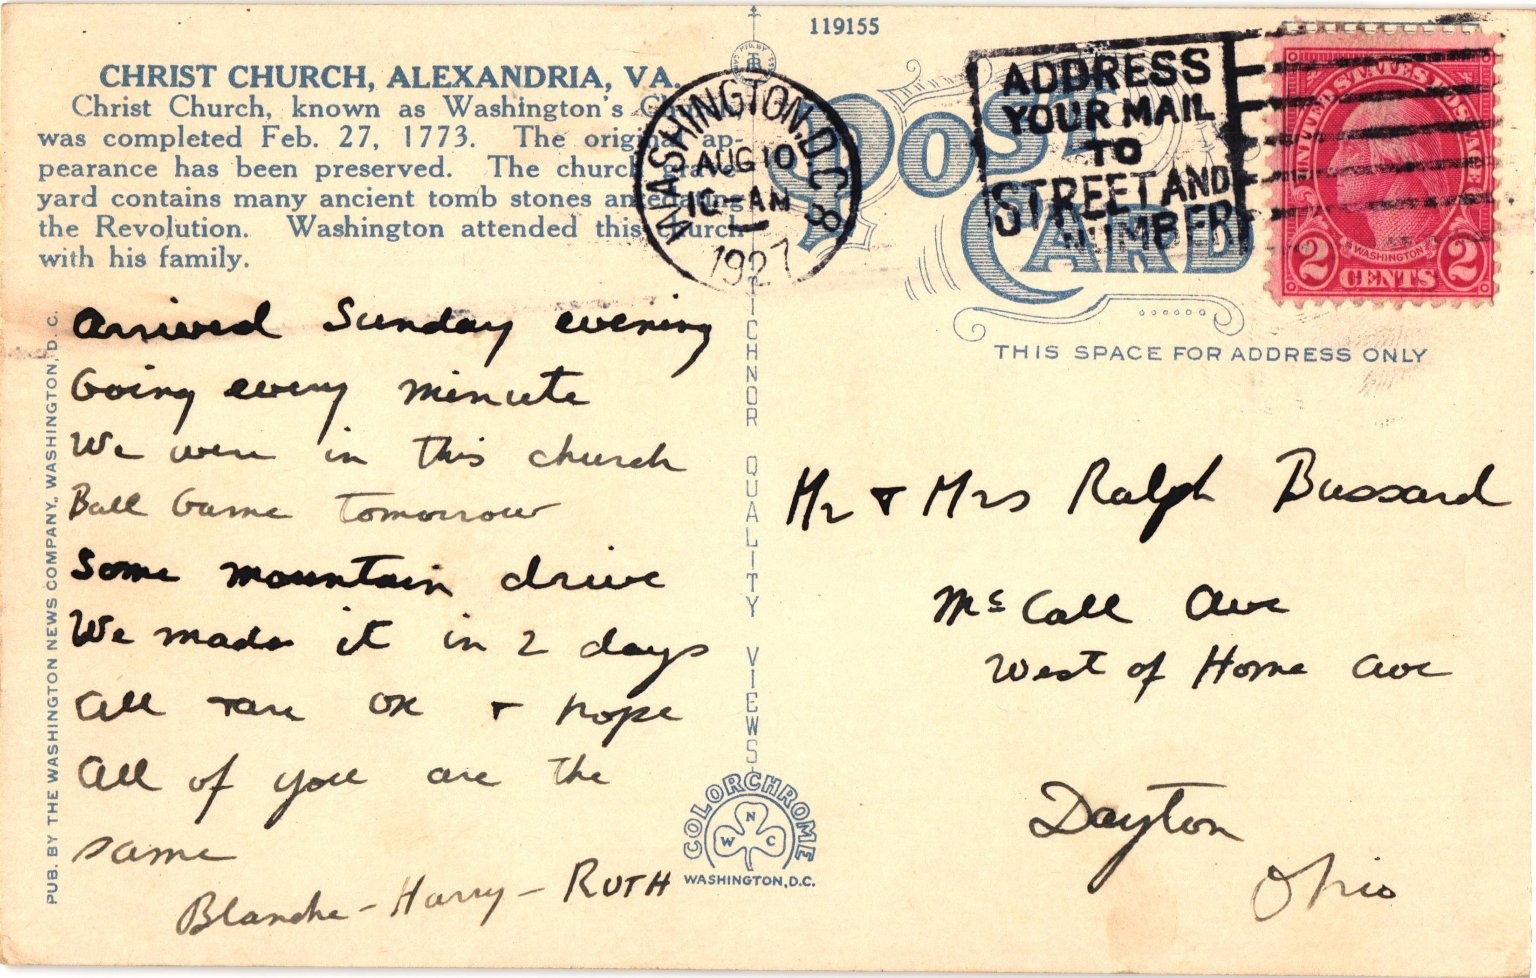 119155
CHRIST CHURCH, ALEXANDRIA, VA.
Christ Church, known as Washington's
was completed Feb. 27, 1773. The original ap-
pearance has been preserved. The church grave-
yard contains many ancient tomb stones antedating
the Revolution. Washington attended this church
with his family.
WASHINGTON, D.C.
AUG 10
10-AM
1927
8
ADDRESS
YOUR MAIL
TO
STREET AND
NUMBER
POST
CARD
UNITED STATES POSTAGE
WASHINGTON
2 CENTS 2
THIS SPACE FOR ADDRESS ONLY
Arrived Sunday evening
Going every minute
We were in this church
Ball Game Tomorrow
Some mountain drive
We made it in 2 days
All are OK + hope
All of you are the
same
Blanche - Harry - RUTH
Mr + Mrs Ralph Bussard
McCall Ave
West of Home Ave
Dayton
Ohio
PUB. BY THE WASHINGTON NEWS COMPANY, WASHINGTON, D.C.
TICHNOR QUALITY VIEWS
COLORCHROME
W N C
WASHINGTON, D.C.